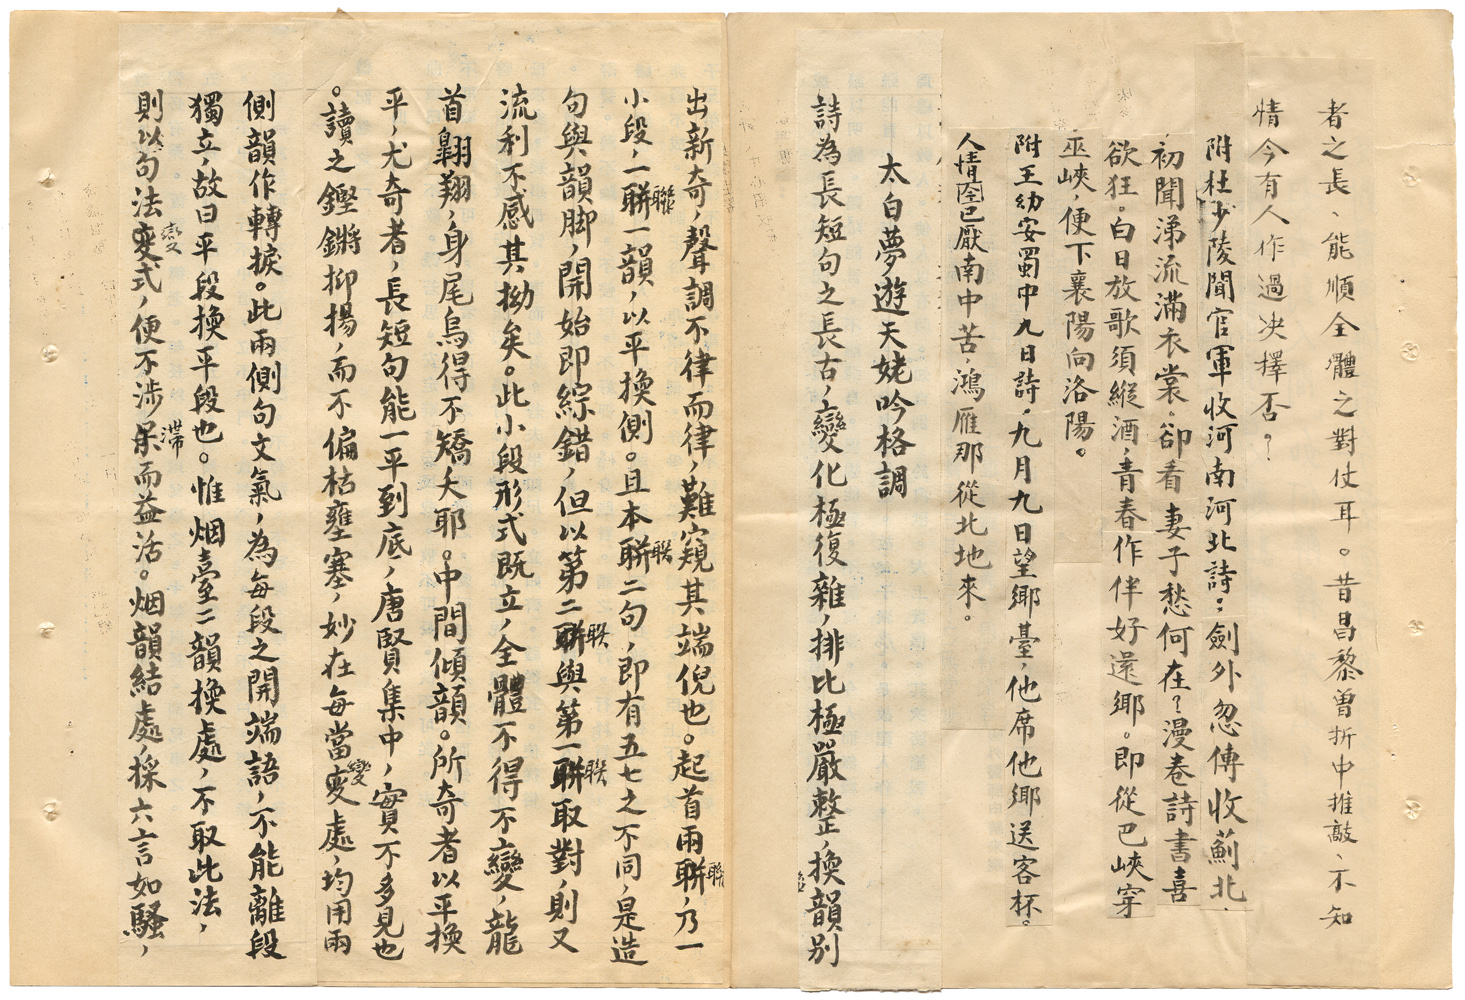 者之長、能順全體之對仗耳。昔昌黎曾折中推敲、不知
情今有人作過決擇否？
附杜少陵聞官軍收河南河北詩：劍外忽傳收薊北，
初聞涕流滿衣裳。卻看妻子愁何在？漫卷詩書喜
欲狂。白日放歌須縱酒，青春作伴好還鄉。即從巴峽穿
巫峽，便下襄陽向洛陽。
附王幼安蜀中九日詩，九月九日望鄉臺，他席他鄉送客杯。
人情已厭南中苦，鴻雁那從北地來。
太白夢遊天姥吟格調
詩為長短句之長古，變化極復雜，排比極嚴整，換韻別
出新奇，聲調不律而律，難窺其端倪也。起首兩聯，乃一
小段，一聯一韻，以平換側。且本聯二句，即有五七之不同，是造
句與韻脚，開始即綜錯，但以第二聯與第一聯取對，則又
流利不感其拗矣。此小段形式既立，全體不得不變，龍
首翱翔，身尾烏得不矯夭耶。中間傾韻。所奇者以平換
平，尤奇者，長短句能一平到底，唐賢集中，實不多見也
。讀之鏗鏘抑揚，而不偏枯壅塞，妙在每當變處，均用兩
側韻作轉捩。此兩側句文氣，為每段之開端語，不能離段
獨立，故曰平段換平段也。惟烟臺二韻換處，不取此法，
則以句法變式，便不涉滯而益活。烟韻結處，採六言如騷，